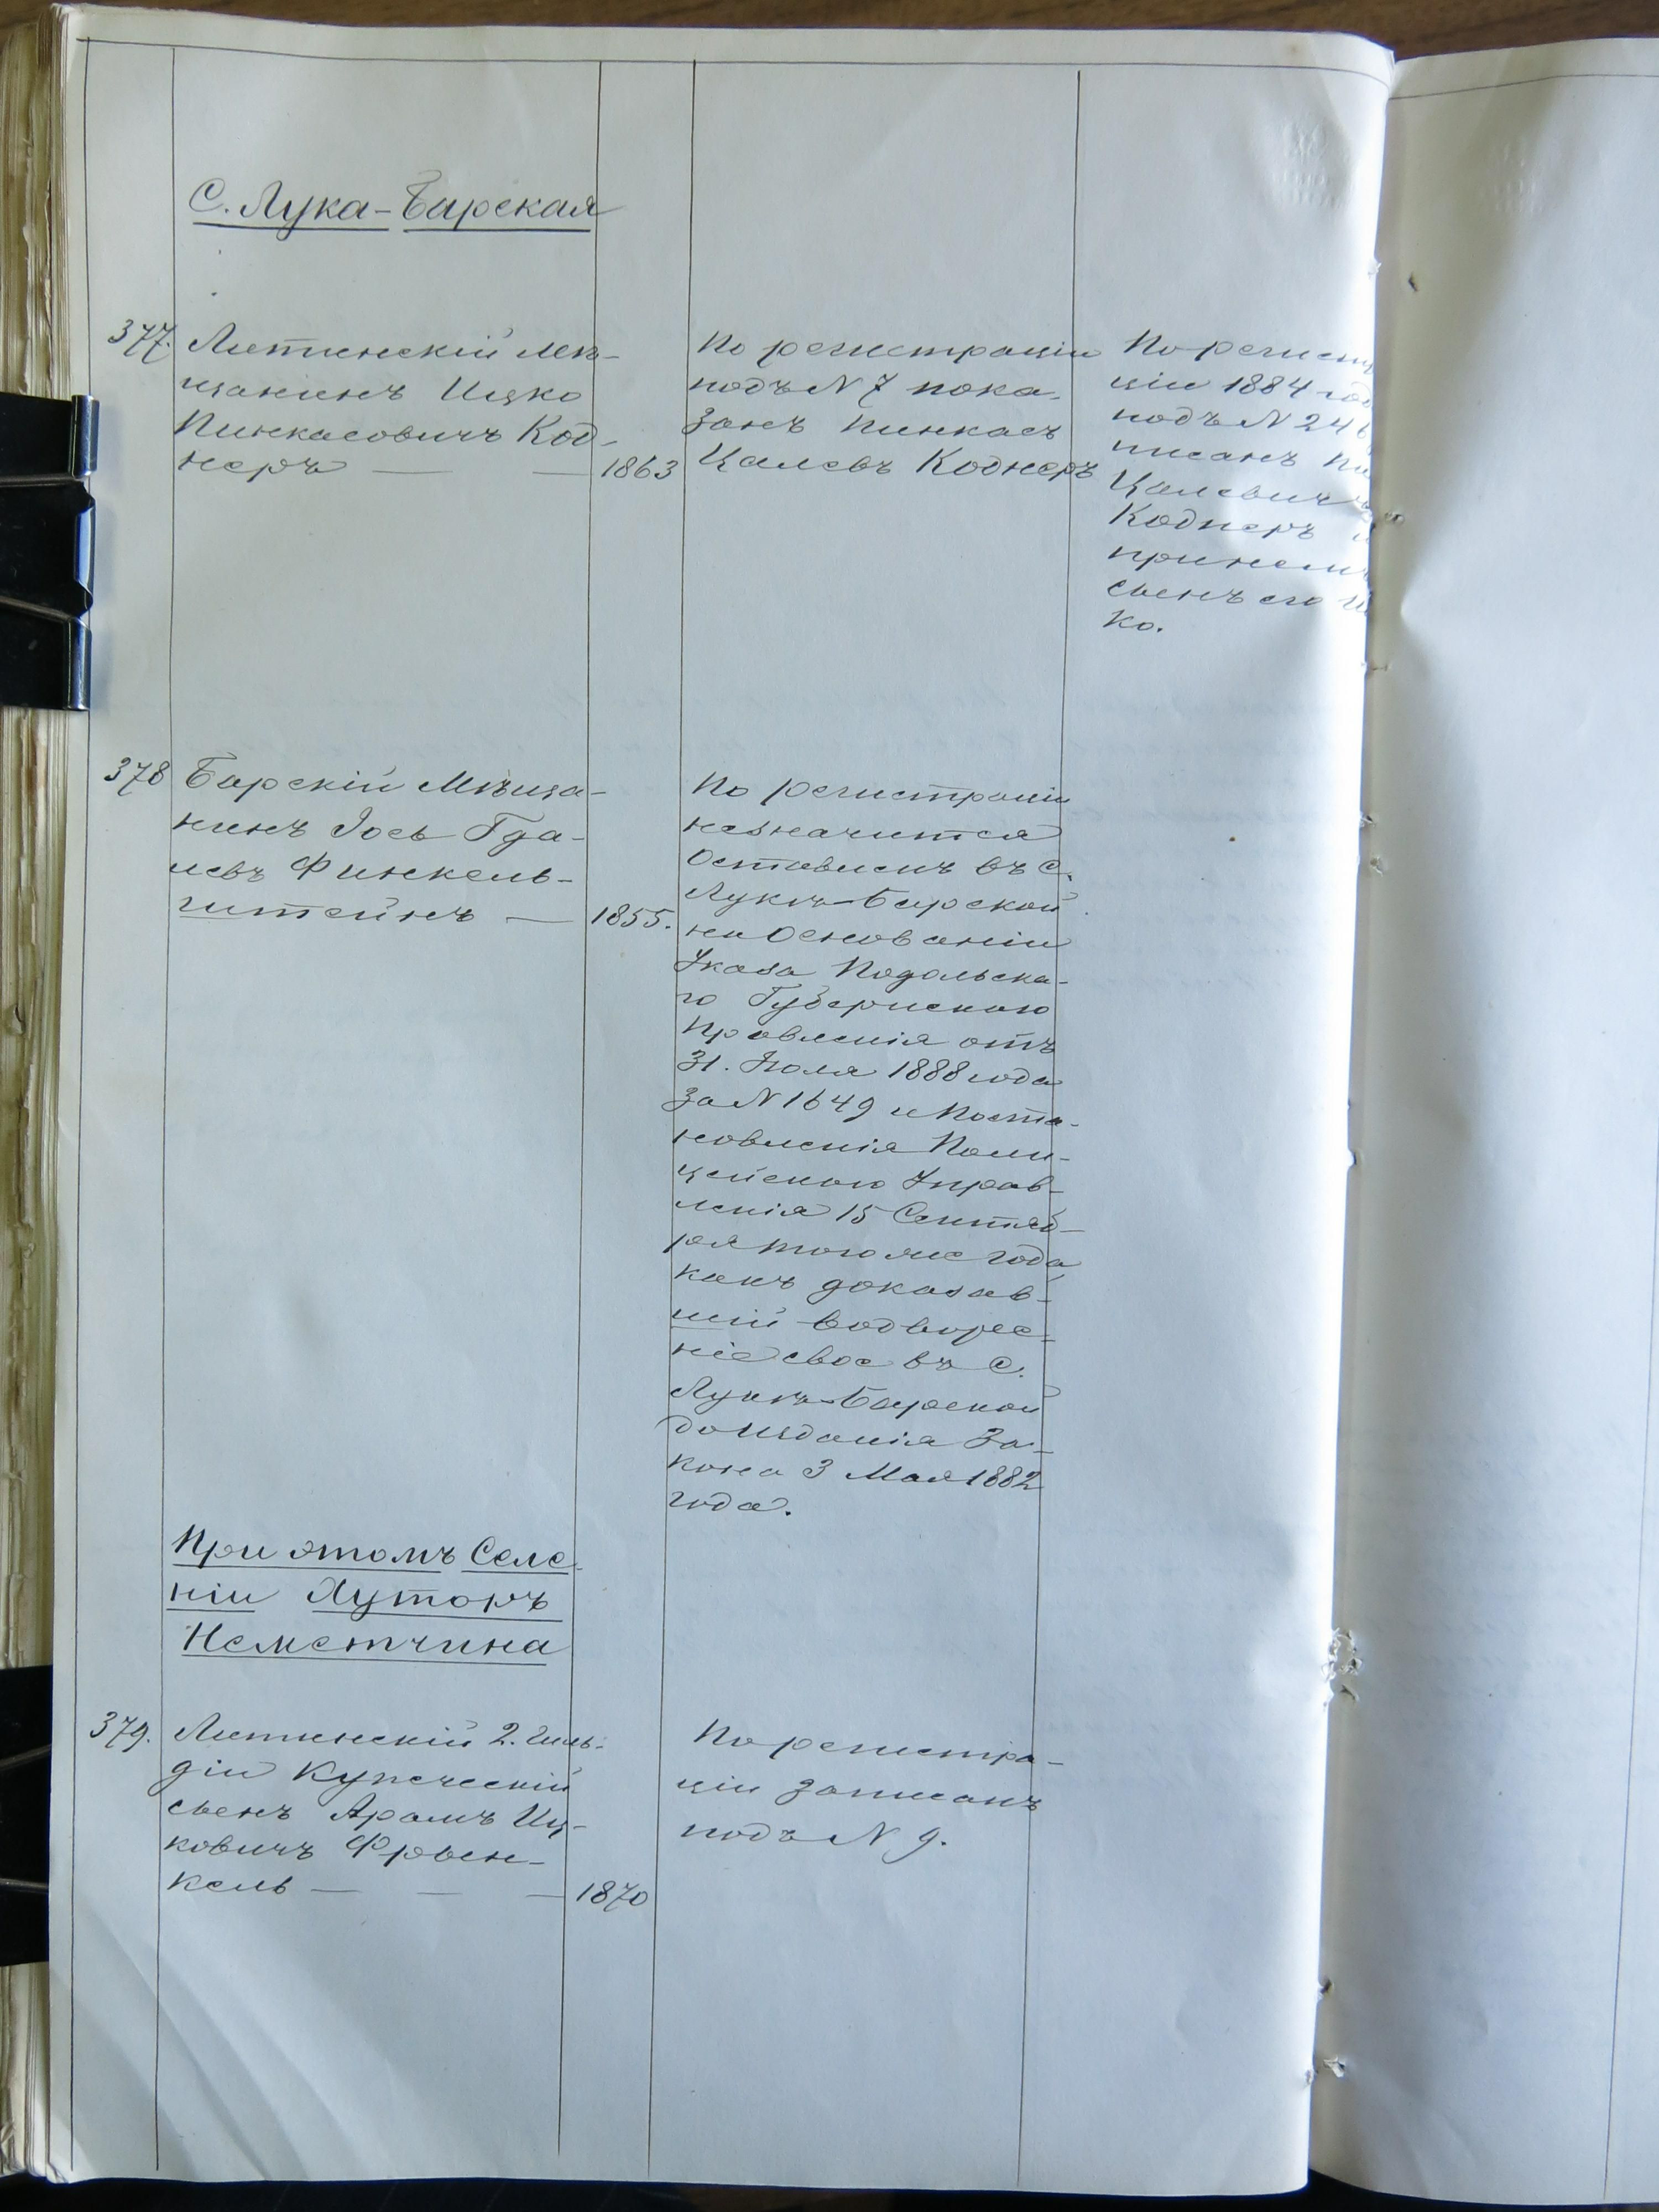 С. Лука-Барская
377. Литинскій мѣ-
щанинъ Ицко
Пинкасовичъ Код-
неръ — — 1863
По регистраціи
подъ N 7 пока-
занъ Пинкасъ
Цалевъ Коднеръ
По регист
ціи 1884 год
подъ N 24
писанъ Пи
Цалевичъ
Коднеръ и
при немъ
сынъ его И
ко.
378 Барскій Мѣща-
нинъ Іось Гда-
левъ Финкель-
штейнъ — 1855.
По регистраціи
незначится
Оставленъ въ С.
Лукѣ-Барской
на Основаніи
Указа Подольска-
го Губернскаго
Правленія отъ
31. Іюля 1888 года
за N 1649 и Поста-
новленія Поли-
цейскаго Управ-
ленія 15 Сентяб-
ря того же года
какъ доказав-
шій водворе-
ніе свое въ С.
Лукѣ-Барской
до изданія За-
кона 3 Мая 1882
года.
При этомъ Селе-
ніи Хуторъ
Неметчина
379. Литинскій 2. Гиль-
діи Купеческій
сынъ Арамъ Иц-
ковичъ Френ-
кель — — — 1870
По регистра-
ціи записанъ
подъ N 9.